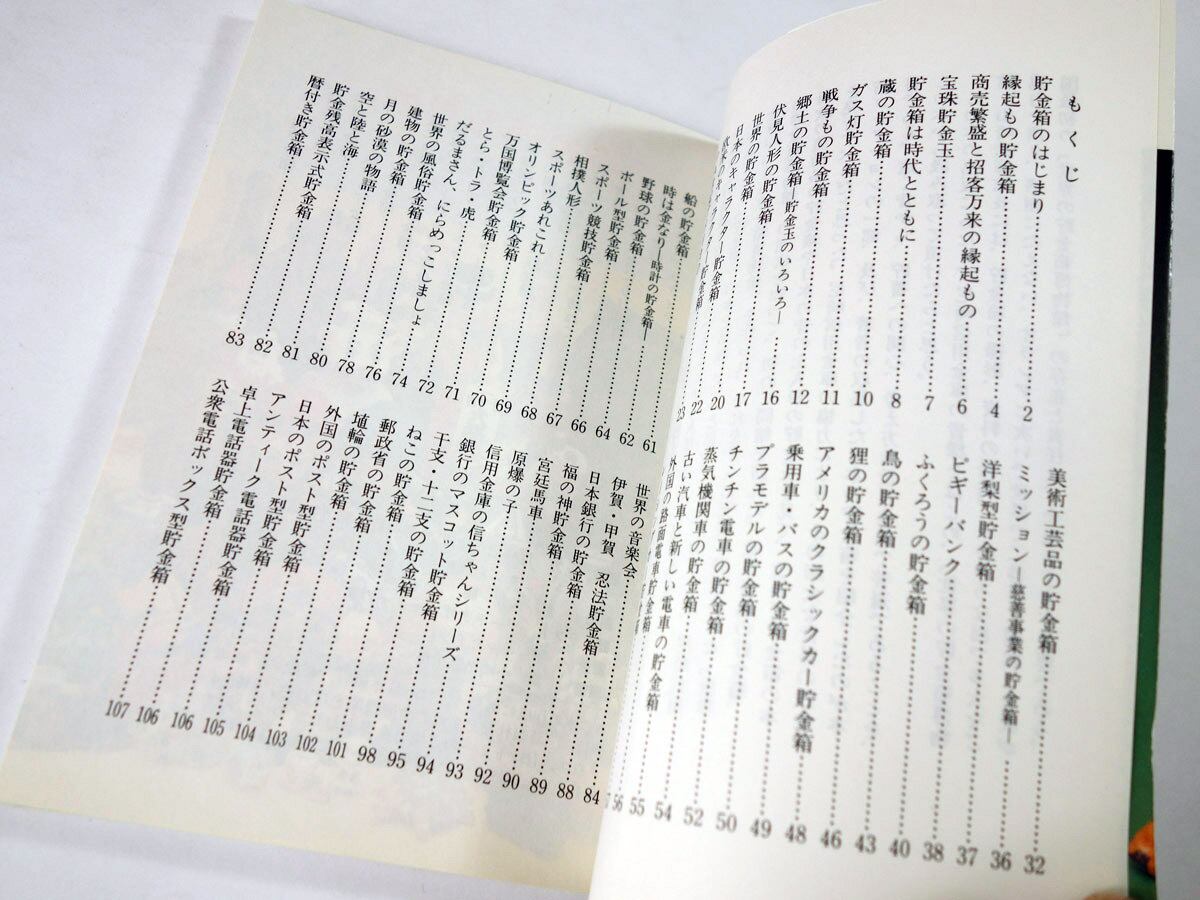 もくじ
貯金箱のはじまり……2
縁起もの貯金箱……4
商売繁盛と招客万来の縁起もの……6
宝珠貯金玉……7
貯金箱は時代とともに
蔵の貯金箱……8
ガス灯貯金箱……10
戦争もの貯金箱……11
郷土の貯金箱―貯金玉のいろいろ―……12
伏見人形の貯金箱……16
世界の貯金箱……17
日本のキャラクター貯金箱……20
欧米のキャラクター貯金箱……22
23
美術工芸品の貯金箱……32
ミッション―慈善事業の貯金箱―……36
洋梨型貯金箱……37
ピギーバンク……38
ふくろうの貯金箱……40
鳥の貯金箱……43
狸の貯金箱……46
アメリカのクラシックカー貯金箱……48
乗用車・バスの貯金箱……49
プラモデルの貯金箱……50
チンチン電車の貯金箱……52
蒸気機関車の貯金箱……54
古い汽車と新しい電車の貯金箱……55
外国の路面電車貯金箱……56
船の貯金箱……61
時は金なり―時計の貯金箱―……62
野球の貯金箱……64
ボール型貯金箱……66
スポーツ競技貯金箱……67
相撲人形……68
スポーツあれこれ……69
オリンピック貯金箱……70
万国博覧会貯金箱……71
とら・トラ・虎……72
だるまさん、にらめっこしましょ……74
世界の風俗貯金箱……76
建物の貯金箱……78
月の砂漠の物語……80
空と陸と海……81
貯金残高表示式貯金箱……82
暦付き貯金箱……83
世界の音楽会……84
伊賀・甲賀 忍法貯金箱……88
日本銀行の貯金箱……89
福の神貯金箱……90
宮廷馬車……92
原爆の子……93
信用金庫の信ちゃんシリーズ……94
銀行のマスコット貯金箱……95
干支・十二支の貯金箱……98
ねこの貯金箱……101
郵政省の貯金箱……102
埴輪の貯金箱……103
外国のポスト型貯金箱……104
日本のポスト型貯金箱……105
アンティーク電話器貯金箱……106
卓上電話器貯金箱……106
公衆電話ボックス型貯金箱……107